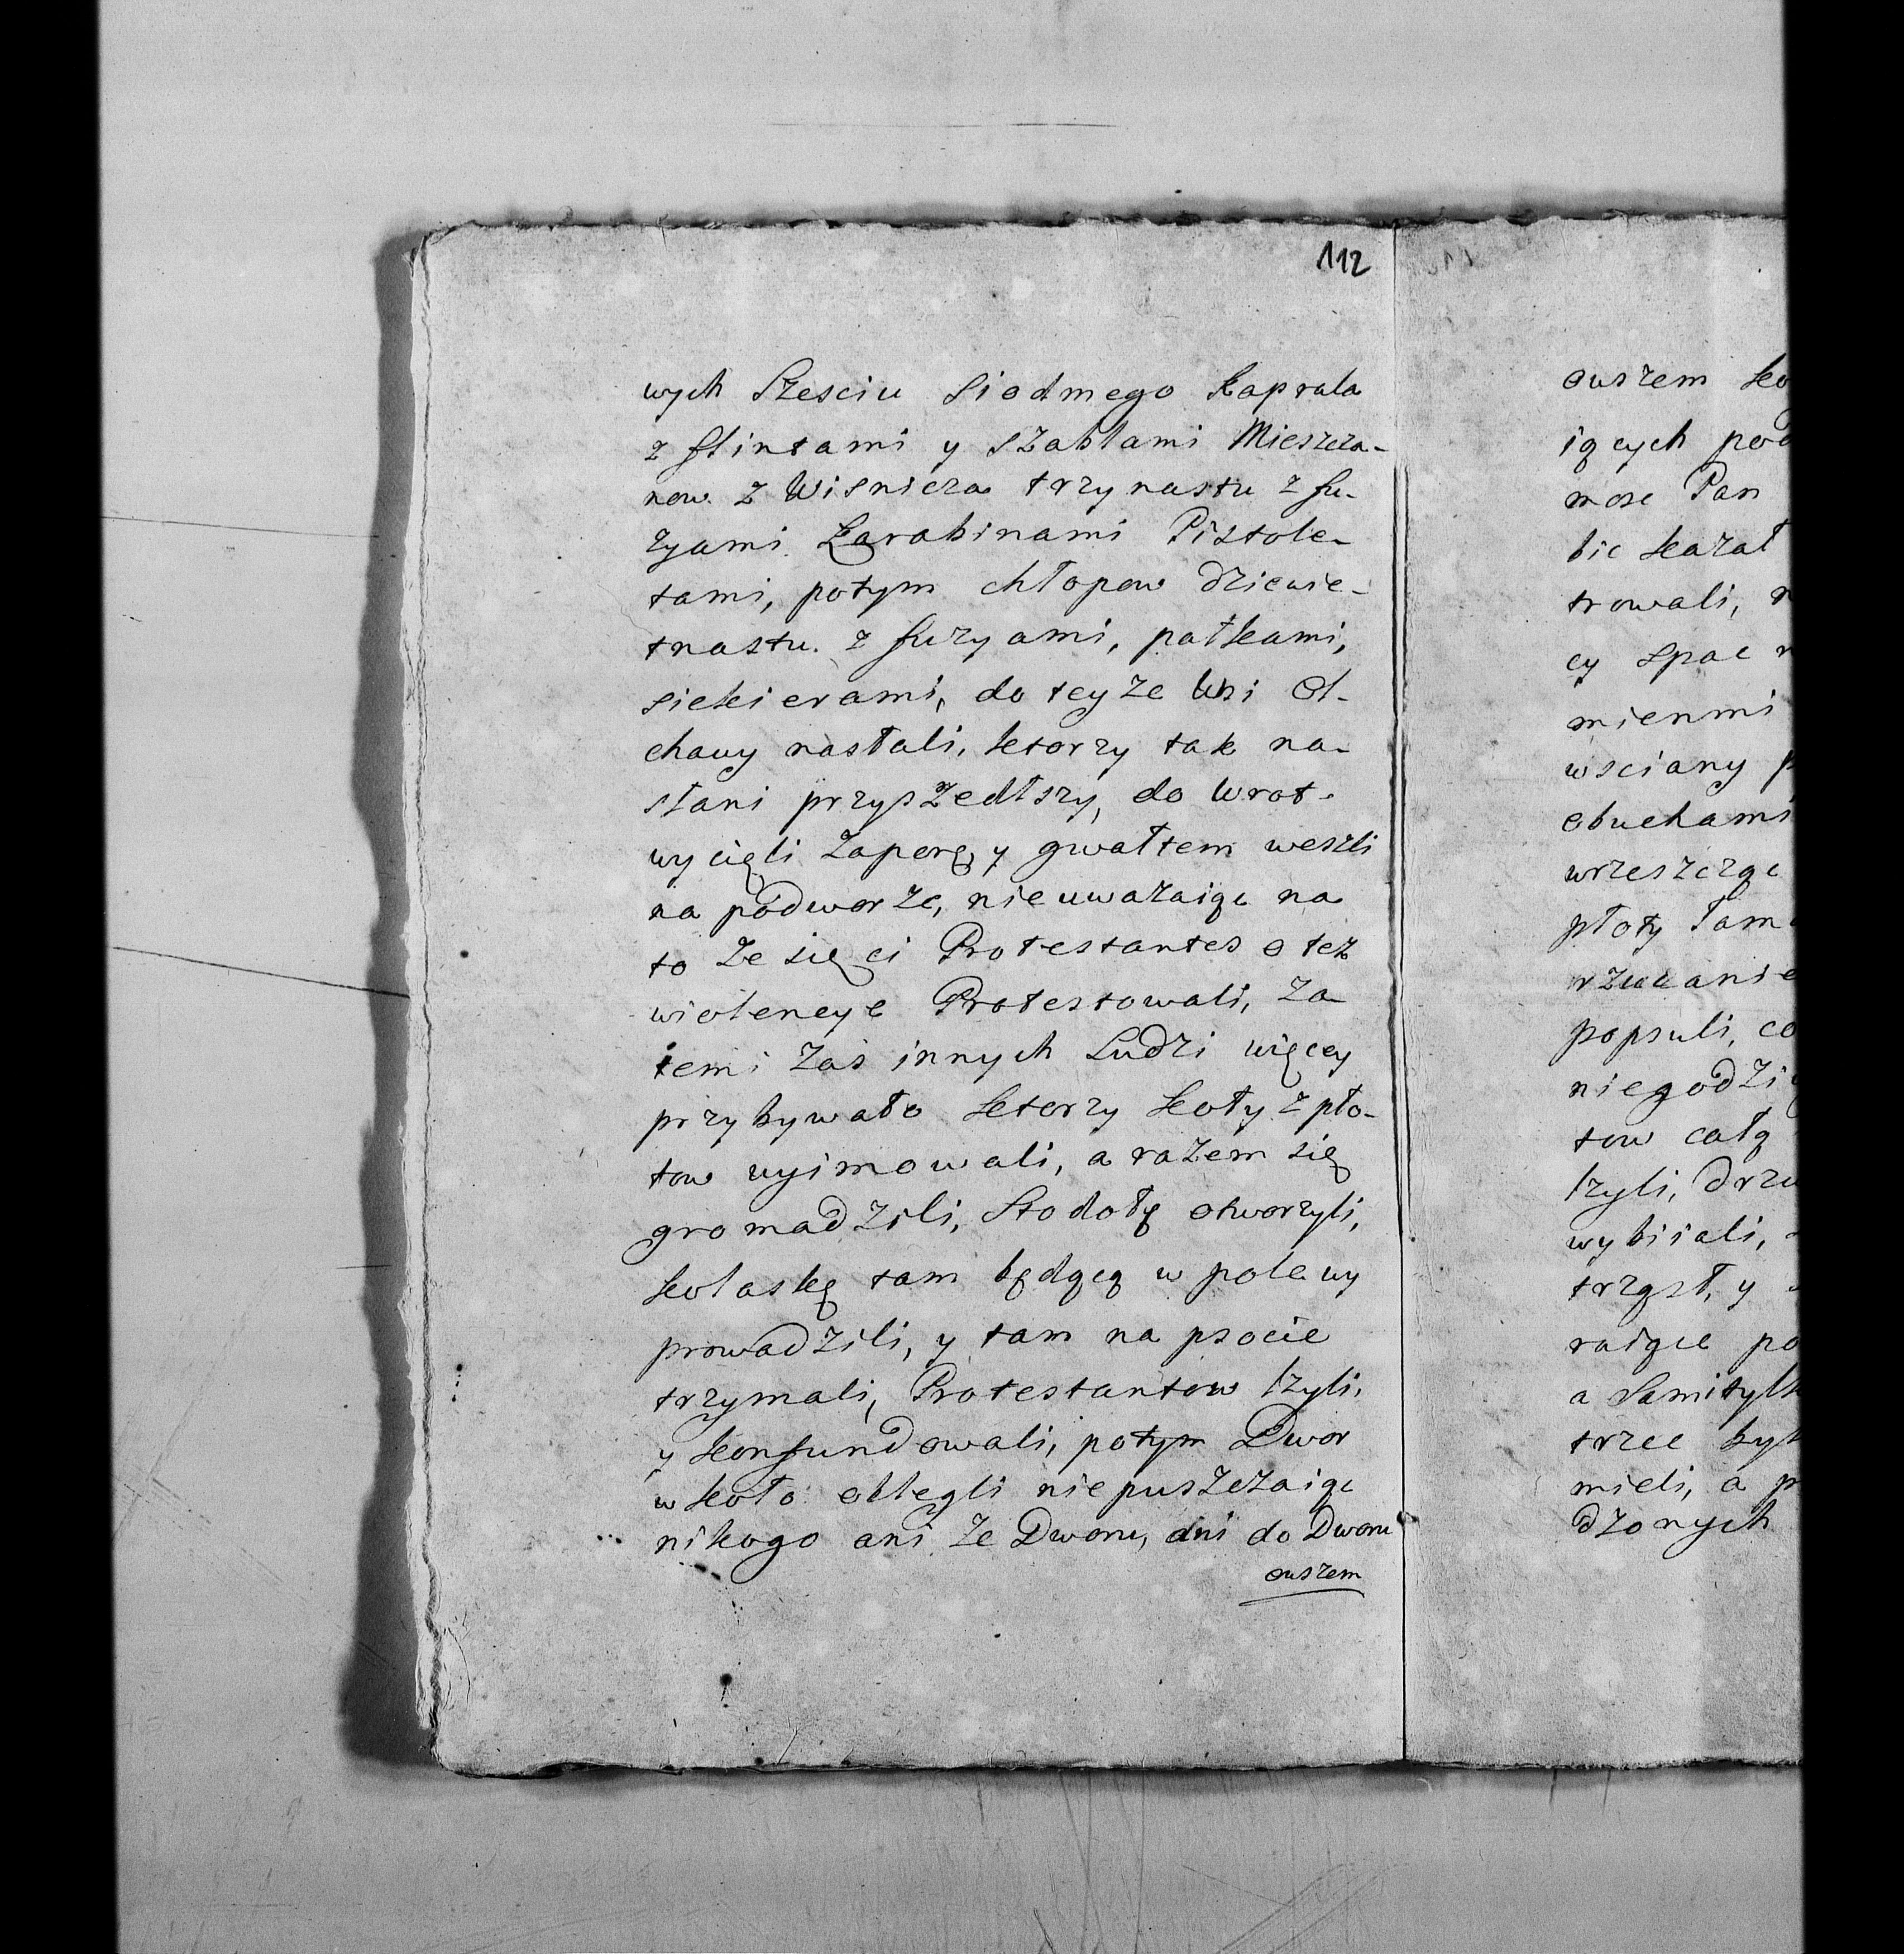 112
wych Szesciu Siodmego Kaprala
z flintami y szablami Mieszcza-
now z Wisnicza trzynastu z fu-
zyami Karabinami Pistole-
tami, potym chłopow dziewie-
tnastu z fuzyami, pałkami,
siekierami, do teyze Wsi Ol-
chawy nasłali, ktorzy tak na-
słani przyszedłszy, do wrot
wycięli Zaporę y gwałtem weszli
na podworze, nieuwazaiąc na
to Ze się ci Protestantes o też
wiolencye Protestowali, Za
temi Zaś innych Ludzi więcey
przybywało ktorzy koły z pło-
tow wyimowali, a razem się
gromadzili, Stodołę otworzyli,
kolaskę tam będącą w pole wy
prowadzili, y tam na psocie
trzymali, Protestantow lzyli,
y konfundowali, potym Dwor
w koło oblegli niepuszczaiąc
nikogo ani Ze Dworu, ani do Dworu
owszem
owszem
iących
mose Pan
bic kazał
trowali,
cy spac
mienmi
wsciany
obuchami
wrzeszcząc
płoty
rzucanie
popsuli, co
tow całą
lzyli,
wybiiali,
trząsł, y
raiące
a
trzec
mieli, a
dzonych